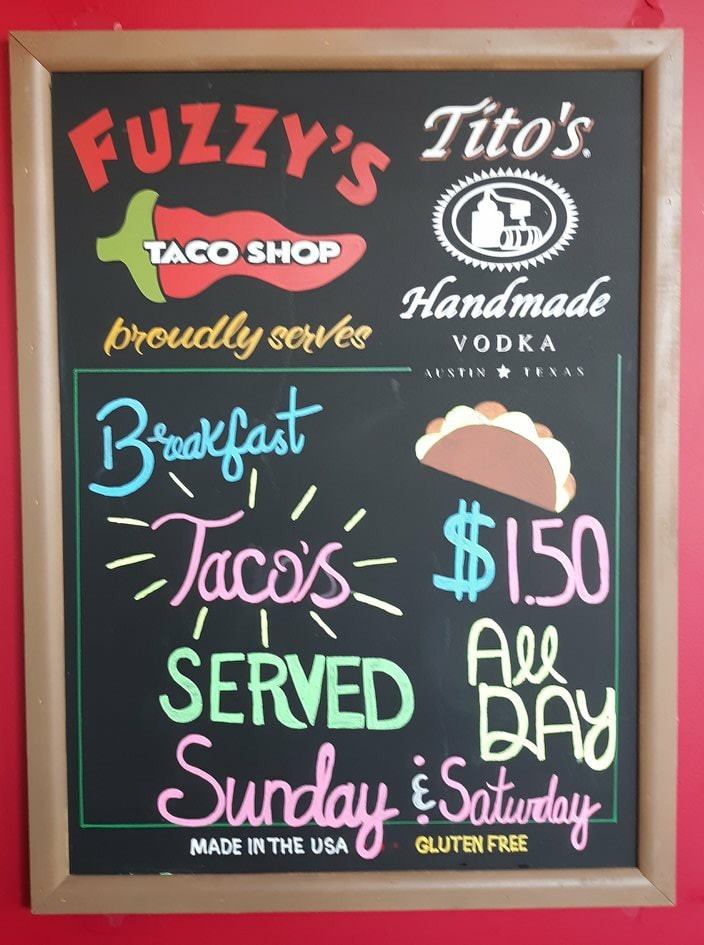 FUZZY'S
TACO SHOP
proudly serves
Tito's
Handmade
VODKA
AUSTIN ★ TEXAS
Breakfast
Taco's
$1.50
SERVED
All
DAY
Sunday & Saturday
MADE IN THE USA
GLUTEN FREE